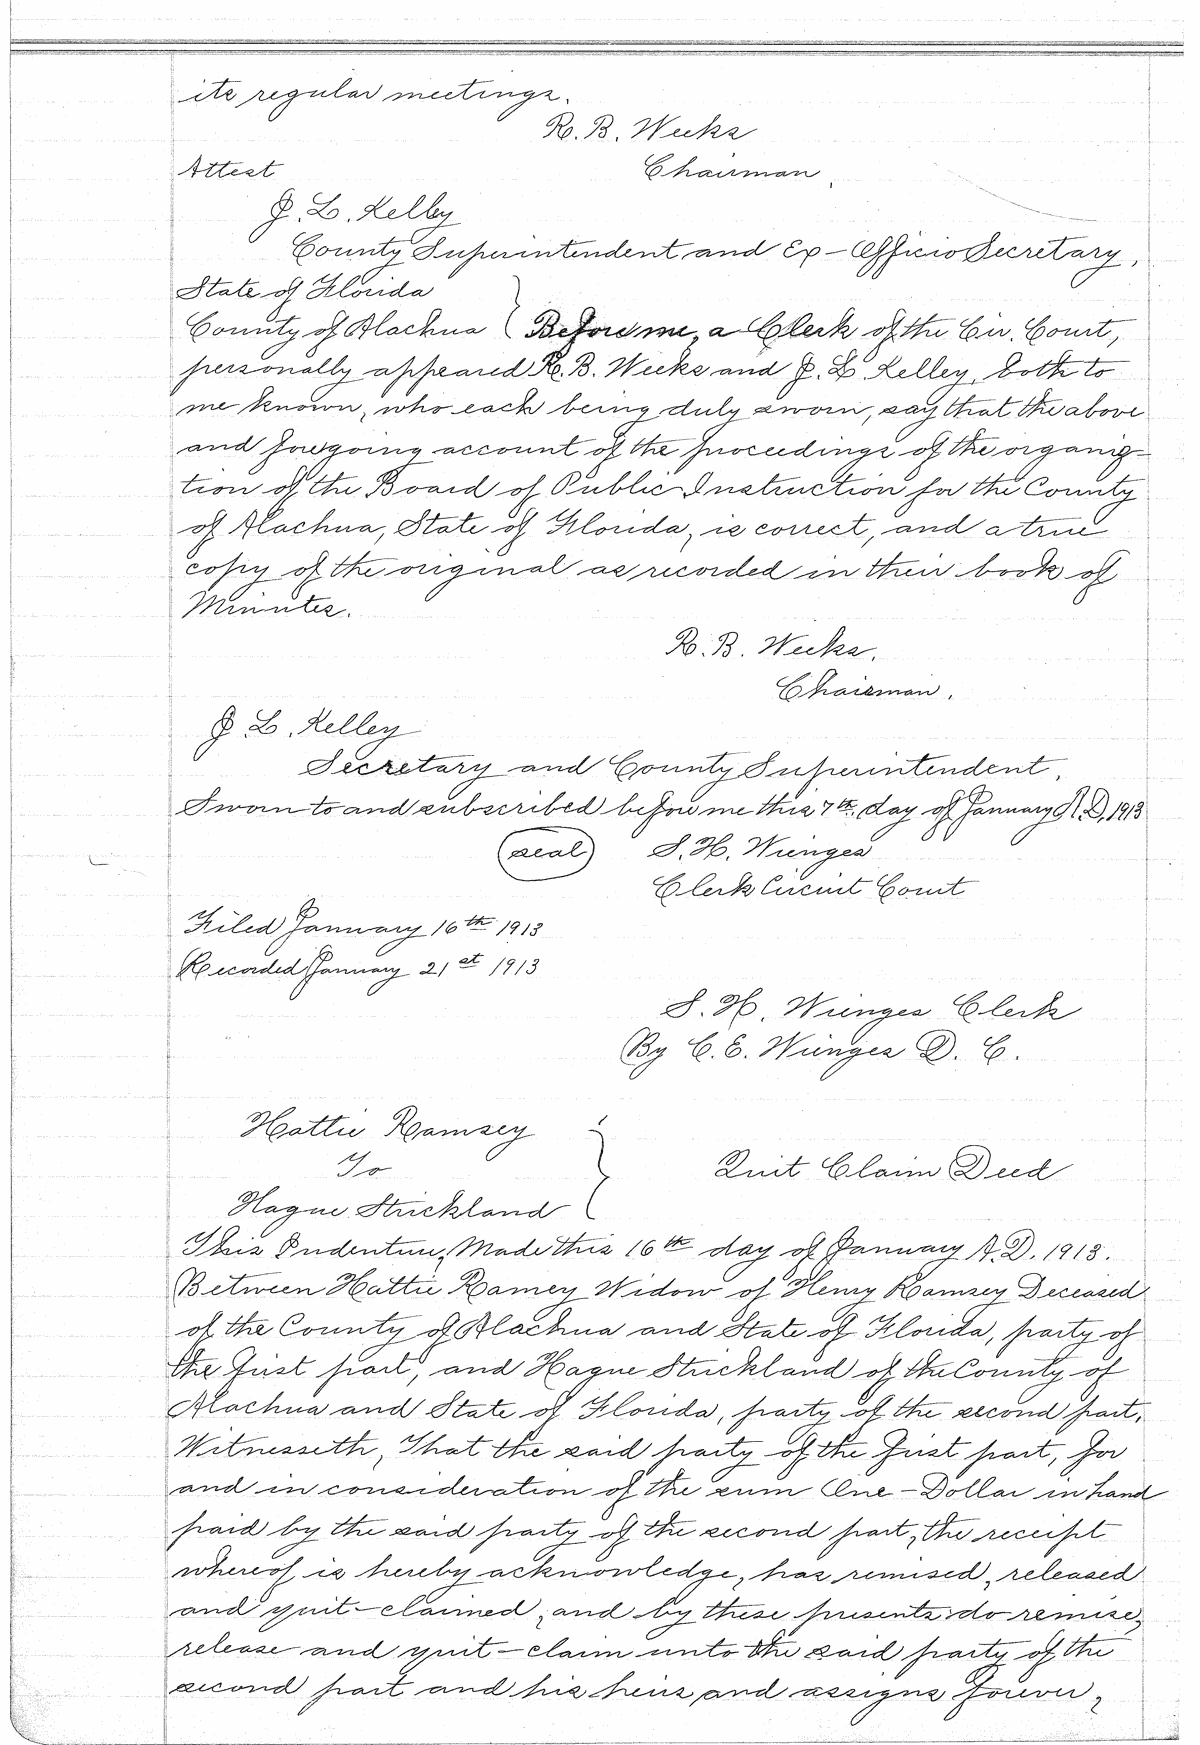 its regular meetings.
R. B. Weeks
Attest Chairman.
J. L. Kelley
County Superintendent and Ex-Officio Secretary,
State of Florida
County of Alachua } Before me, a Clerk of the Cir. Court,
personally appeared R. B. Weeks and J. L. Kelley, both to
me known, who each being duly sworn, say that the above
and foregoing account of the proceedings of the organiz-
tion of the Board of Public Instruction for the County
of Alachua, State of Florida, is correct, and a true
copy of the original as recorded in their book of
Minutes.
R. B. Weeks.
Chairman.
J. L. Kelley
Secretary and County Superintendent.
Sworn to and subscribed before me this 7th. day of January A. D, 1913
(seal) S. H. Wienges
Clerk Circuit Court
Filed January 16th 1913
Recorded January 21st 1913
S. H. Wienges Clerk
By C. E. Wienges D. C.
Hattie Ramsey
To } Quit Claim Deed
Hague Strickland
This Indenture, Made this 16th day of January A. D. 1913.
Between Hattie Ramey Widow of Henry Ramsey Deceased
of the County of Alachua and State of Florida, party of
the first part, and Hague Strickland of the County of
Alachua and State of Florida, party of the second part,
Witnesseth, That the said party of the first part, for
and in consideration of the sum One-Dollar in hand
paid by the said party of the second part, the receipt
whereof is hereby acknowledge, has remised, released
and quit-claimed, and by these presents do remise,
release and quit-claim unto the said party of the
second part and his heirs and assigns forever,